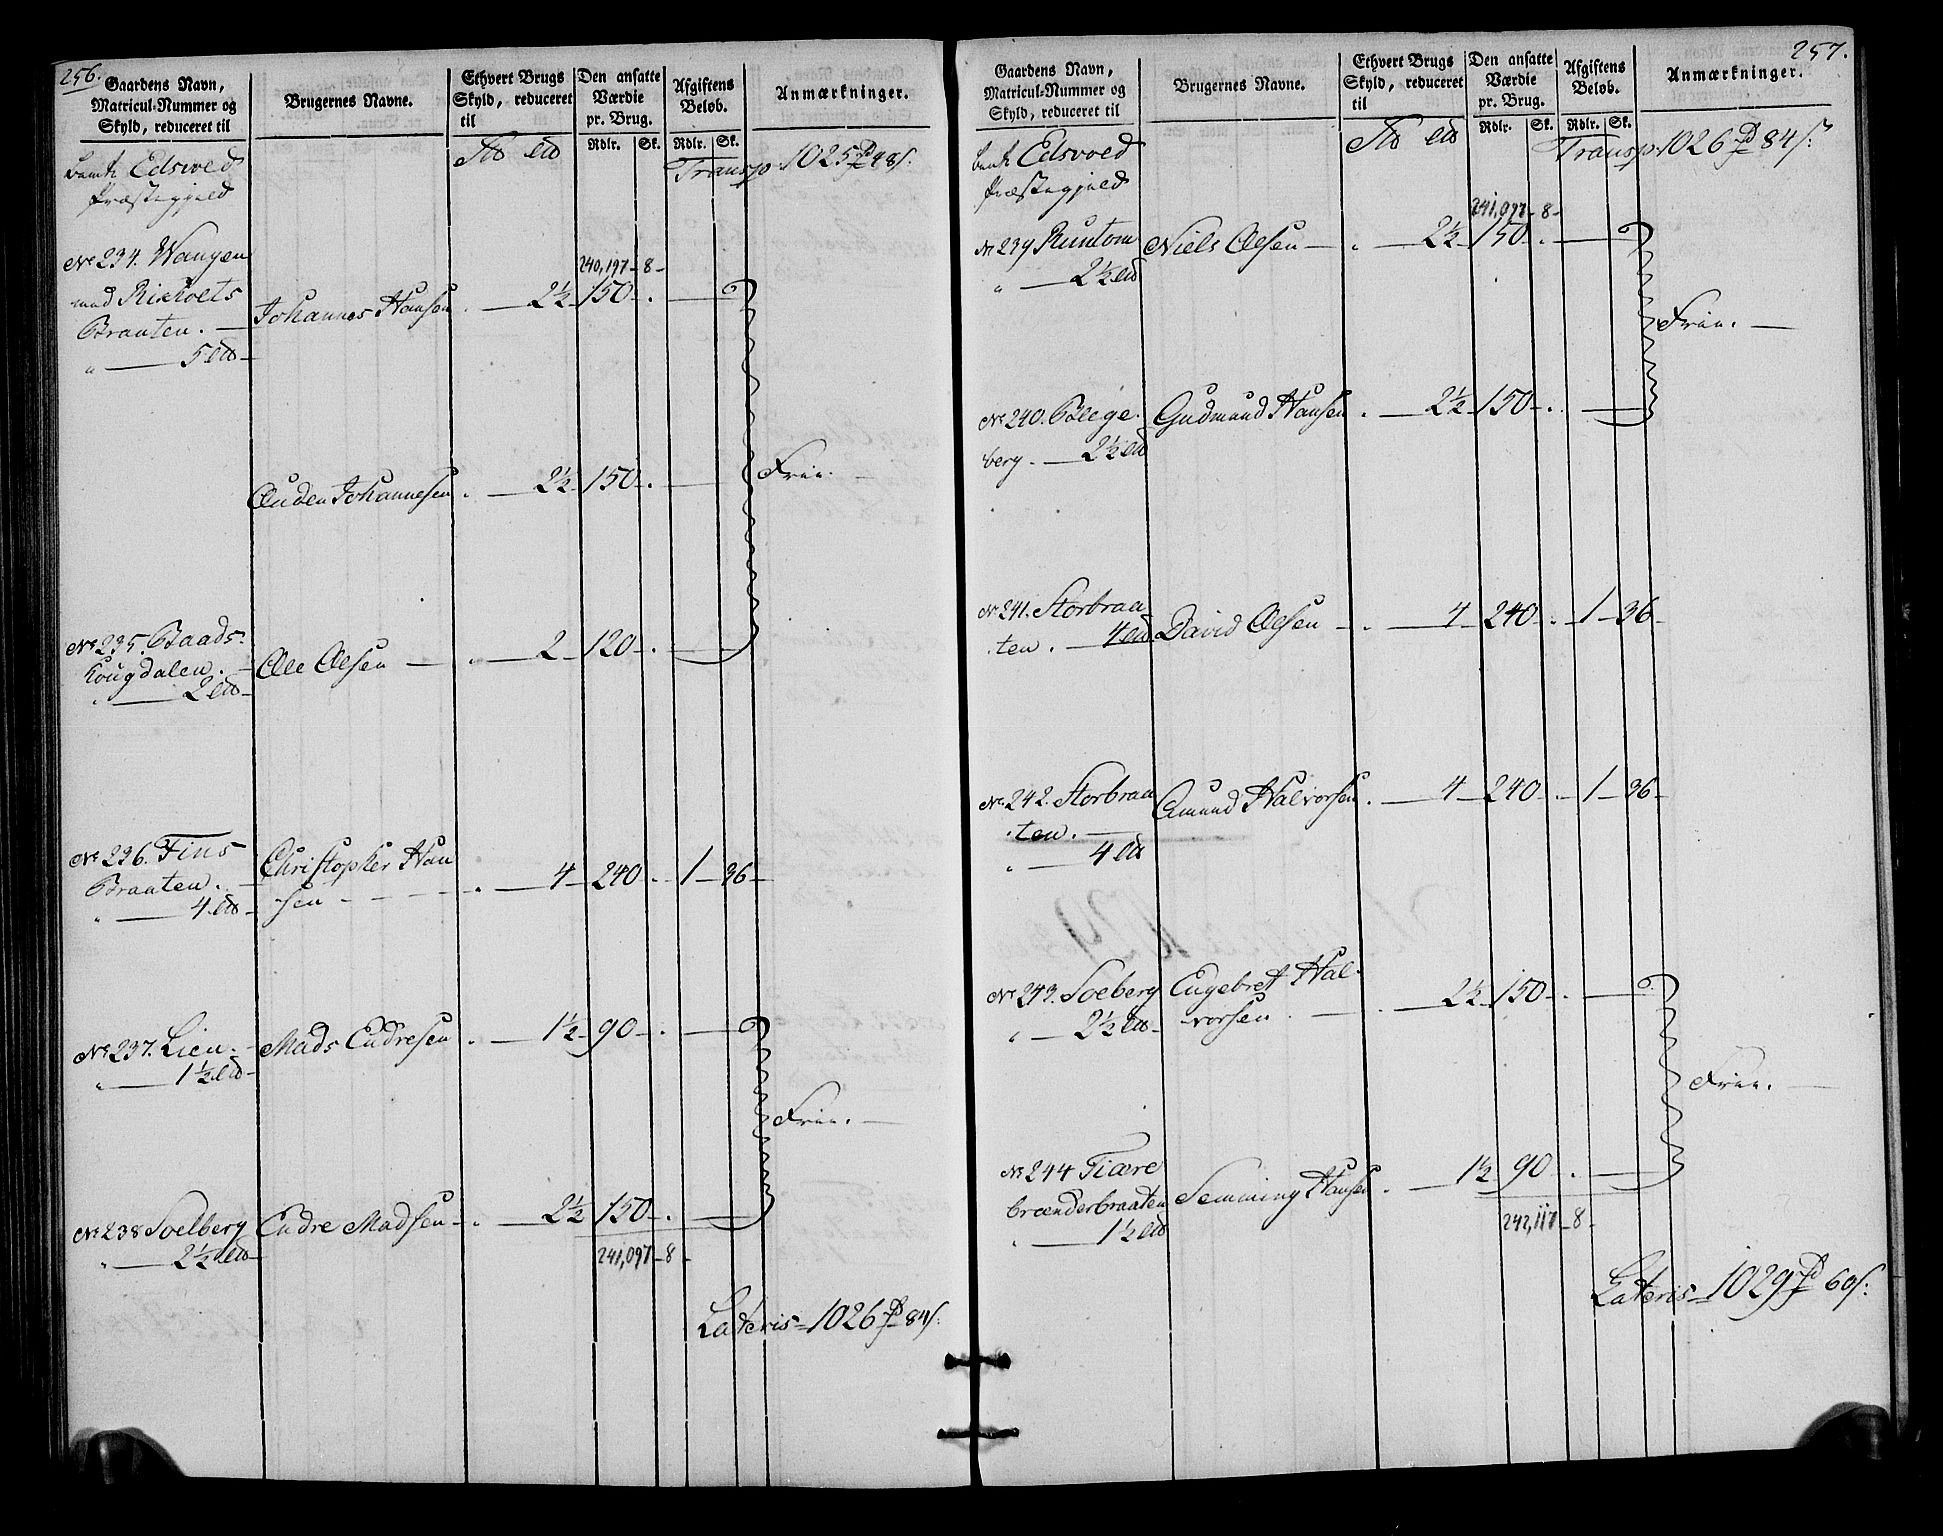 256.
Gaardens Navn,
Matricul-Nummer og
Skyld, reduceret til
Brugernes Navne.
Ethvert Brugs
Skyld, reduceret
til
Den ansatte
Værdie
pr. Brug.
Rdlr. Sk.
Afgiftens
Beløb.
Rdlr. Sk.
Anmærkninger.
Edsvoed
Præstegjeld
Transp. 1025 48
№ 234. Wangen
med
Braaten. —
" — 5
240,197 - 8 -
Johannes Hansen . — 2½ 150 - . —
Auden Johannesen . — 2½ 150 - . —
Frie. —
№ 235. Baads-
kougdalen. —
" — 2
Ole Olsen — . — 2 - 120 - . —
№ 236. Fins
Braaten. —
" — 4
Christopher Han
sen - - - . — 4 - 240 - . 1 - 36 -
№ 237. Lien. —
" — 1½
Mads Endresen . — 1½ - 90 - . —
Frie. —
№ 238 Soelberg
" — 2½
Endre Madsen - . — 2½ 150 - . —
241,097 - 8 -
Lateris = 1026 84
257.
Gaardens Navn,
Matricul-Nummer og
Skyld, reduceret til
Brugernes Navne.
Ethvert Brugs
Skyld, reduceret
til
Den ansatte
Værdie
pr. Brug.
Rdlr. Sk.
Afgiftens
Beløb.
Rdlr. Sk.
Anmærkninger.
Edsvoed
Præstegjeld
Transp. 1026 84
241,097 - 8 -
№ 239 Runtom
" — 2½
Niels Olsen — . — 2½ 150 . —
Frie. —
№ 240. Blege-
berg. — 2½
Gudmund Hansen . — 2½ - 150 - . —
№ 241. Storbraa
ten. — 4
David Olsen - . — 4 - 240 - . 1 - 36 -
№ 242. Storbraa
ten. —
" — 4
Amund Halvorsen . — 4 - 240 - . 1 - 36 -
№ 243. Soeberg
" — 2½
Engebret Hal-
vorsen . — . — 2½ - 150 - . —
Frie. —
№ 244 Tiære
brænderbraaten
" — 1½
Semming Hansen . — 1½ 90 . —
242,117 - 8 -
Lateris = 1029 60